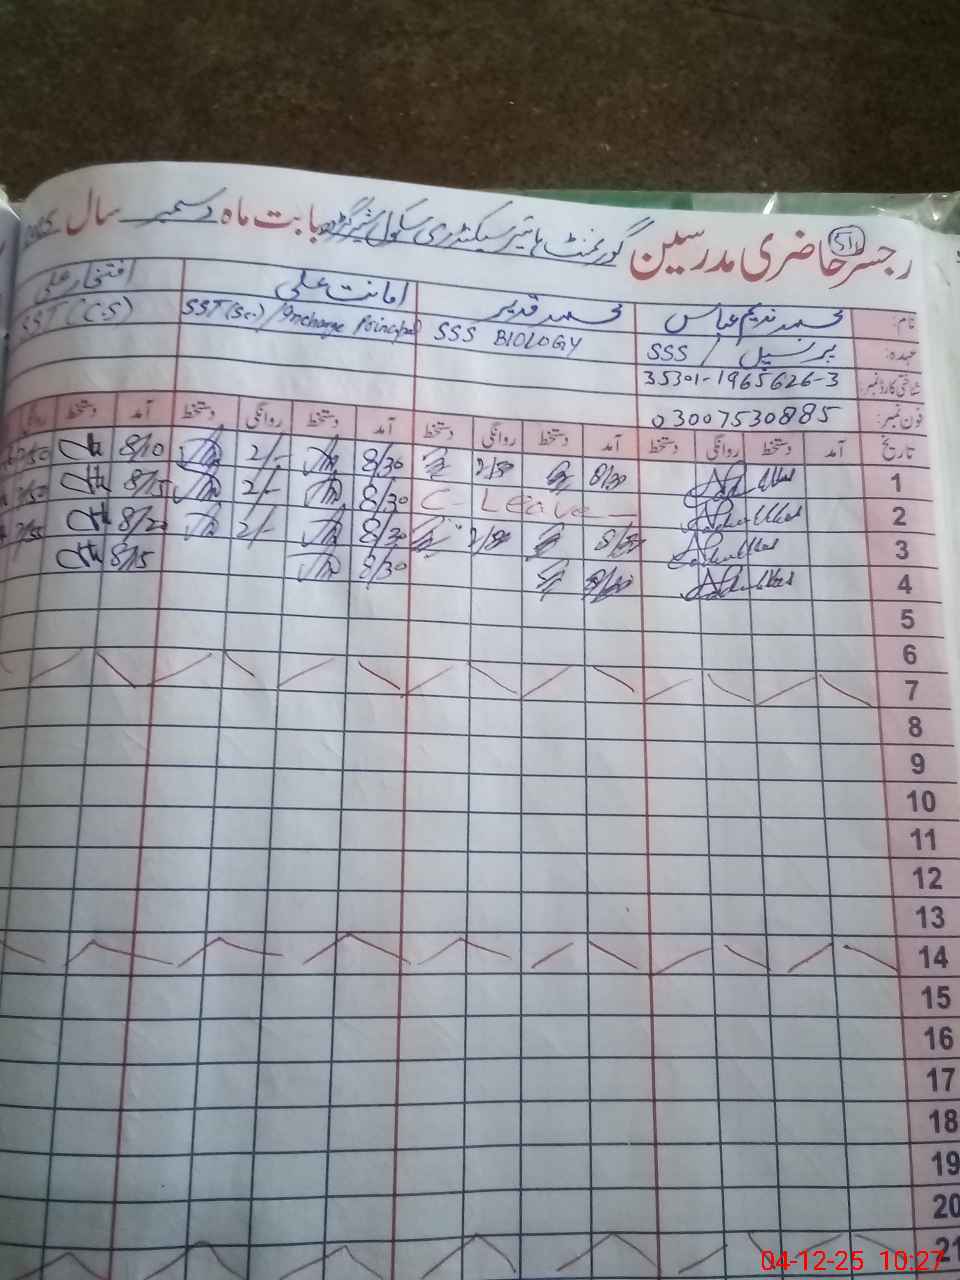 رجسٹر حاضری مدرسین گورنمنٹ ہائیر سیکنڈری سکول شیرگڑھ بابت ماہ دسمبر سال
نام: محمد ندیم عباس محمد قدیر امانت علی افتخار علی
عہدہ: پرنسپل / SSS SSS BIOLOGY SST(Sc.)/Incharge Principal SST (C.S)
شناختی کارڈ نمبر: 35301-1965626-3
فون نمبر: 03007530885
تاریخ آمد دستخط روانگی دستخط آمد دستخط روانگی دستخط آمد دستخط روانگی دستخط آمد دستخط روانگی
1 8/30 2/- 8/10
2 C-Leave 8/30 2/- 8/15
3 8/30 2/- 8/20
4 8/30 8/15
5
6
7
8
9
10
11
12
13
14
15
16
17
18
19
20
21
04-12-25 10:27